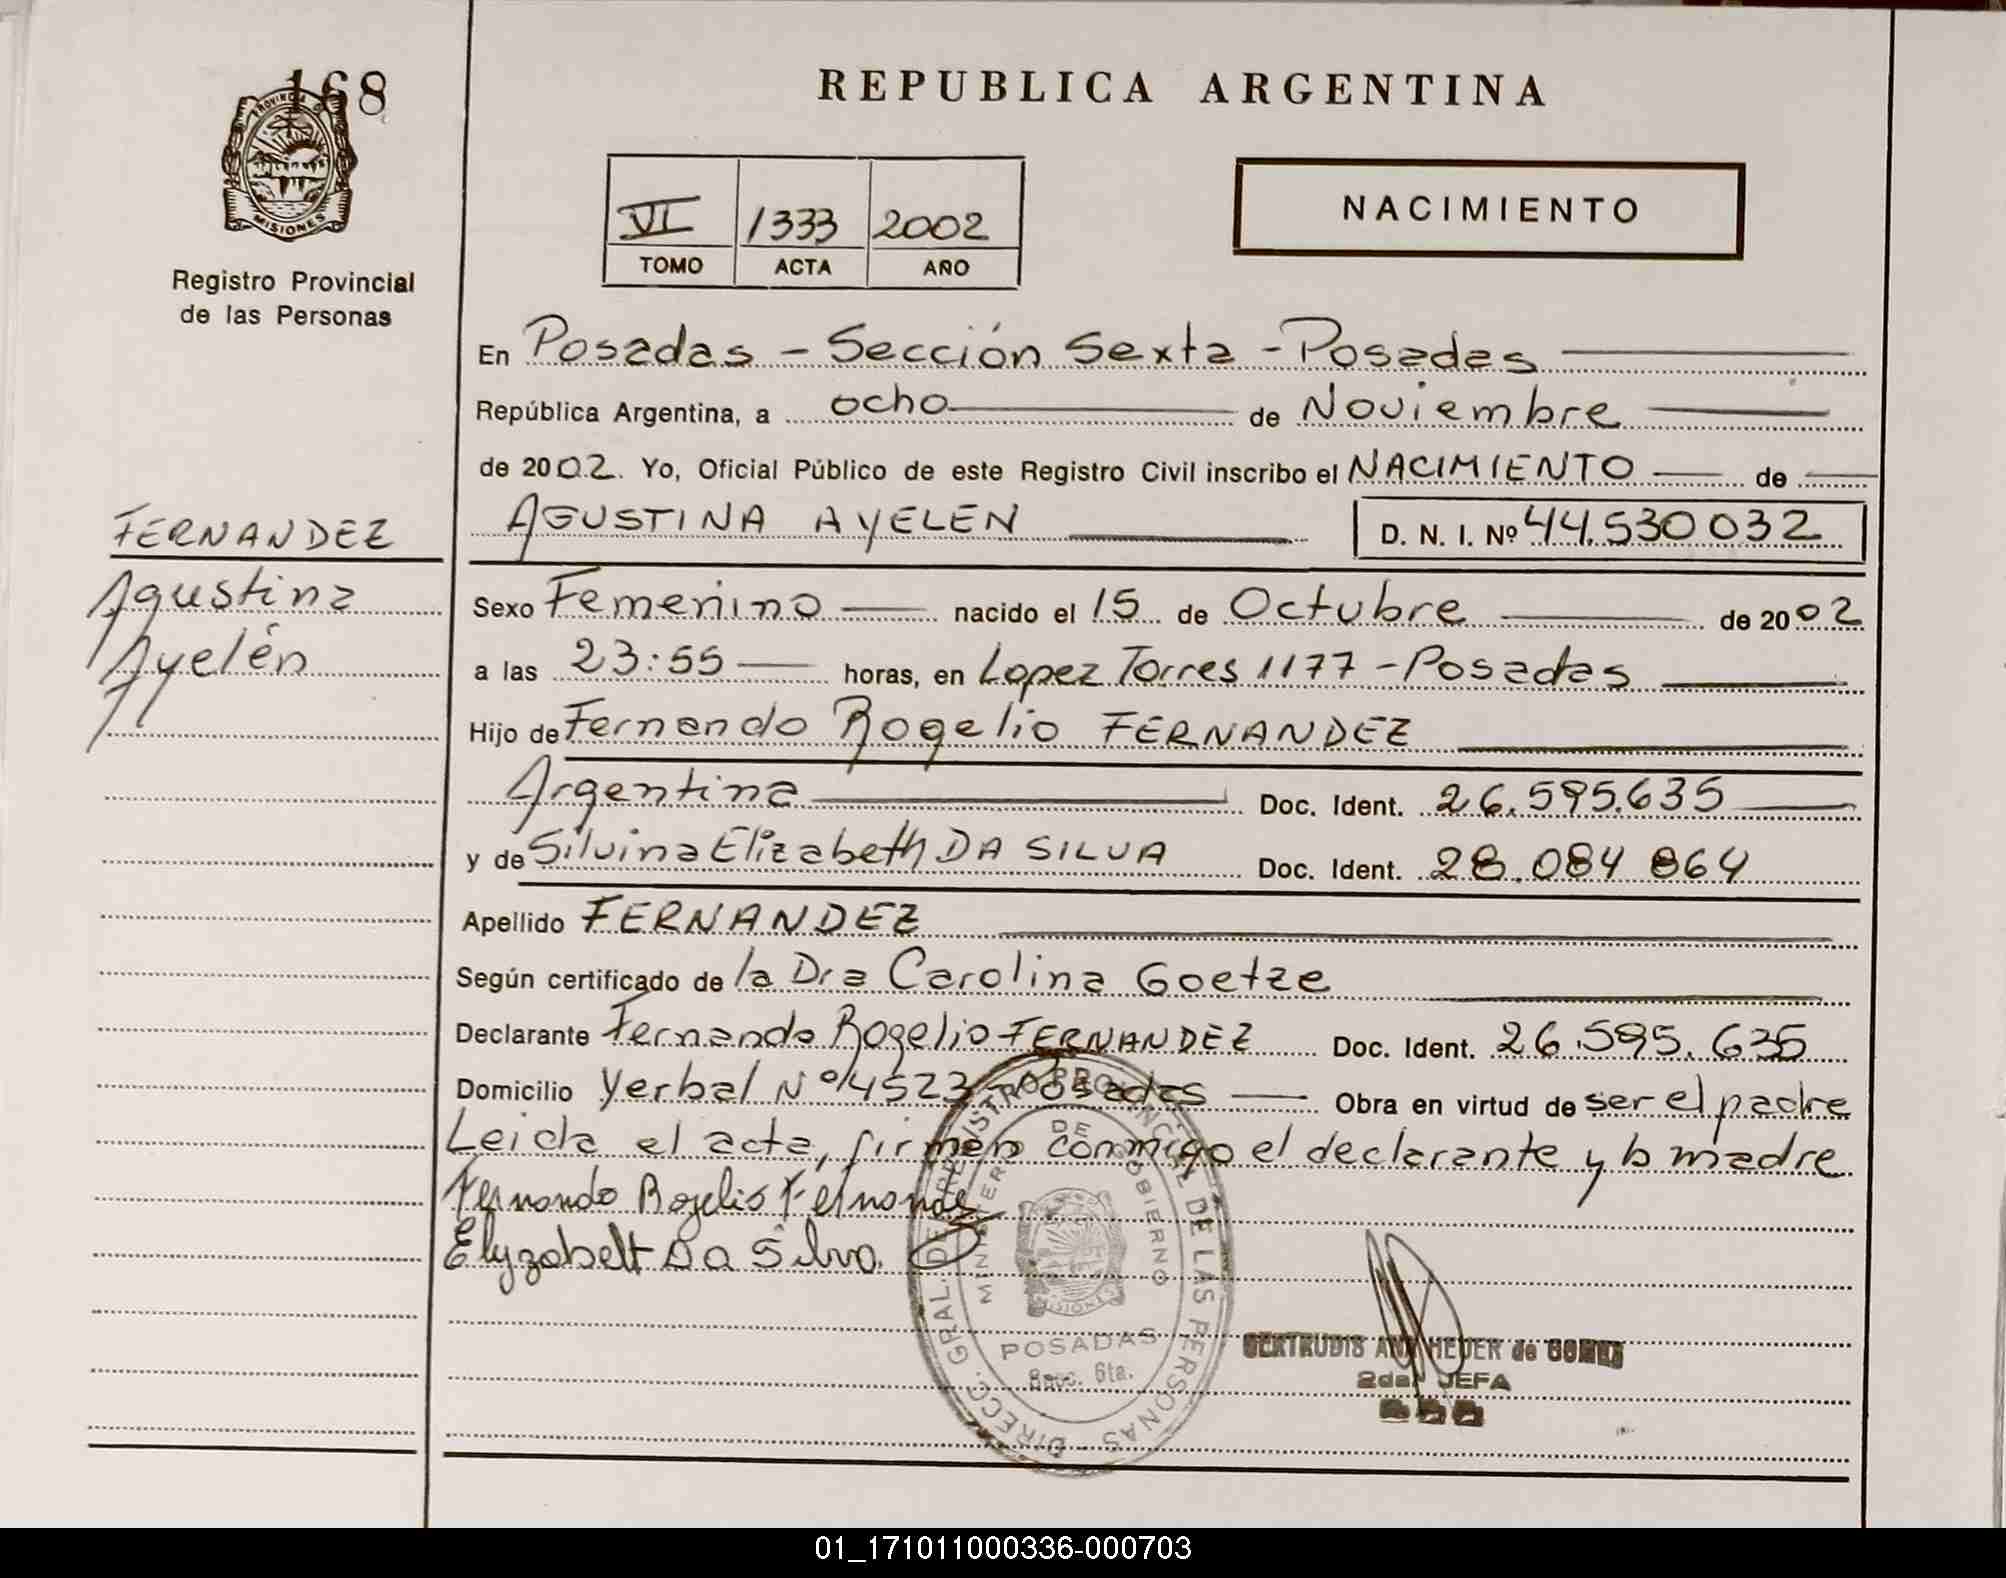 168
PROVINCIA DE
MISIONES
Registro Provincial
de las Personas
FERNANDEZ
Agustina
Ayelén
REPUBLICA ARGENTINA
VI 1333 2002
TOMO ACTA AÑO
NACIMIENTO
En Posadas - Sección Sexta - Posadas
República Argentina, a ocho de Noviembre
de 2002. Yo, Oficial Público de este Registro Civil inscribo el NACIMIENTO de
AGUSTINA AYELEN D. N. I. Nº 44.530032
Sexo Femenino nacido el 15 de Octubre de 2002
a las 23:55 horas, en Lopez Torres 1177 - Posadas
Hijo de Fernando Rogelio FERNANDEZ
Argentina Doc. Ident. 26.595.635
y de Silvina Elizabeth DA SILVA Doc. Ident. 28.084 864
Apellido FERNANDEZ
Según certificado de la Dra Carolina Goetze
Declarante Fernando Rogelio FERNANDEZ Doc. Ident. 26.595.635
Domicilio Yerbal Nº 4523 - Posadas Obra en virtud de ser el padre
Leida el acta, firman conmigo el declarante y la madre
Fernando Rogelio Fernandez
Elyzabelt Da Silva.
DIRECC. GRAL DE REGISTRO PROVINCIAL DE LAS PERSONAS
MINISTERIO DE GOBIERNO
MISIONES
POSADAS
Secc. 6ta.
GERTRUDIS HEUER de
2da JEFA
01_171011000336-000703